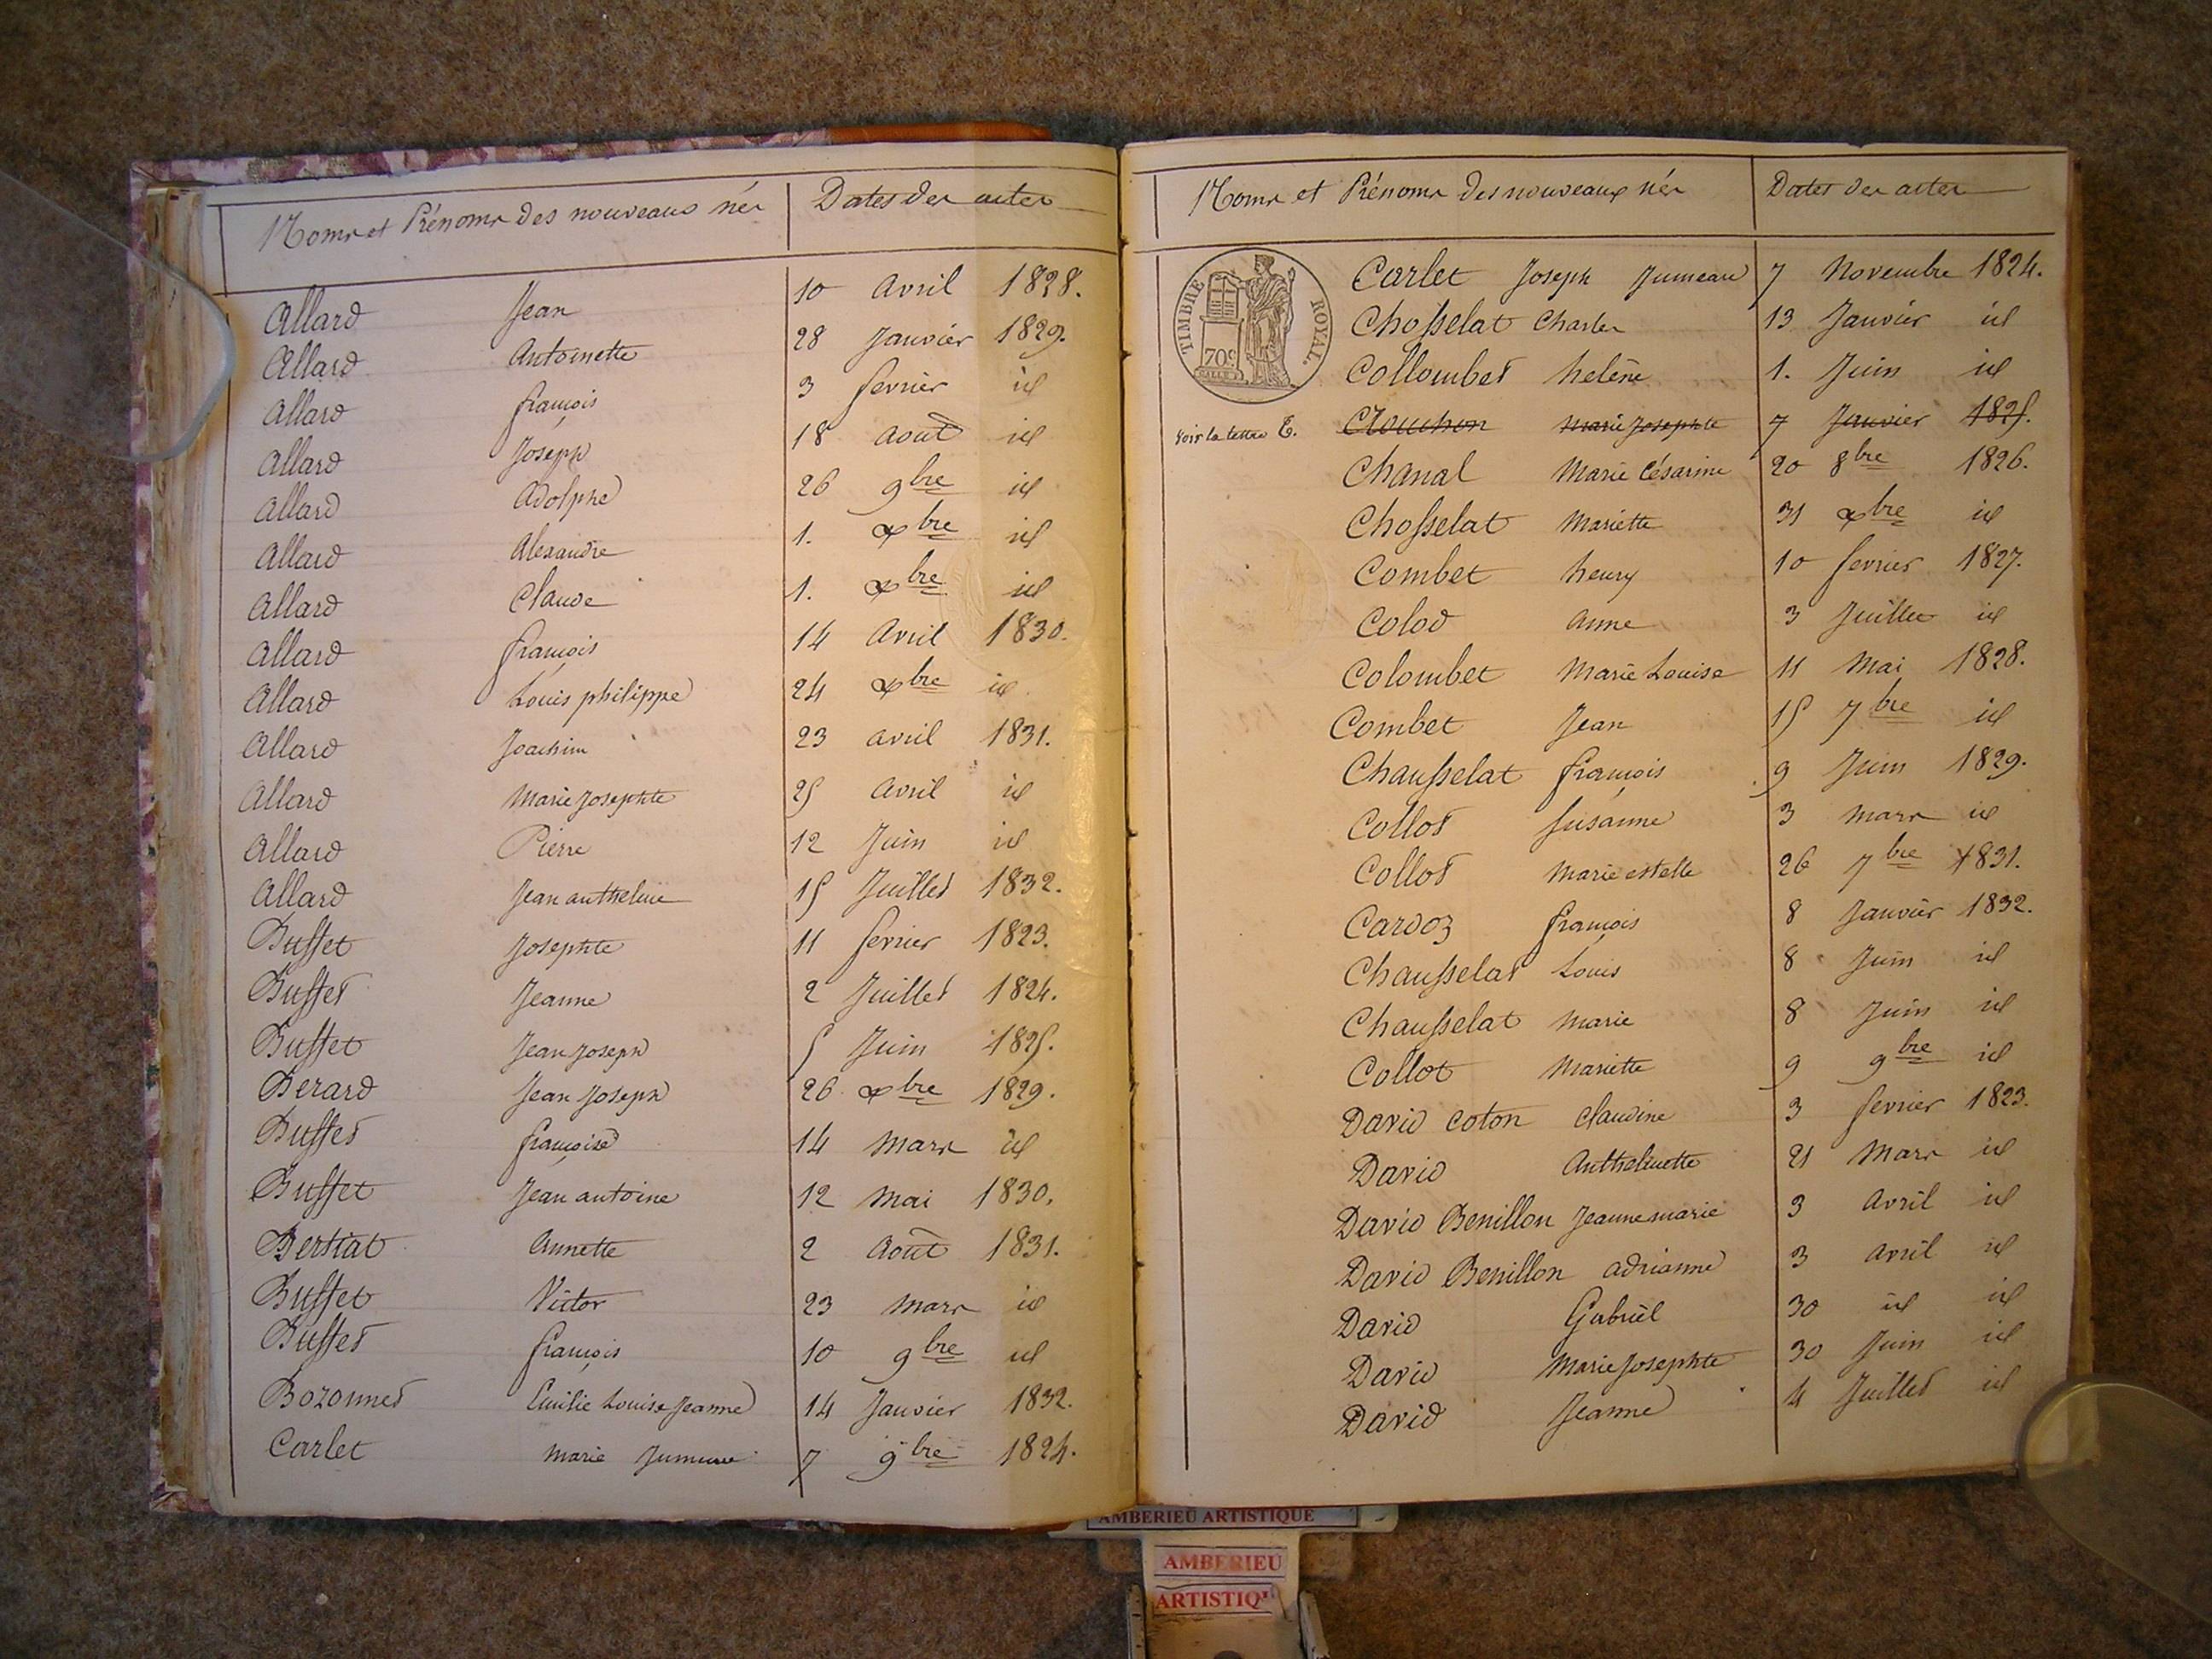 Noms et Prénoms des nouveaux nés Dates des actes
Allard Jean 10 Avril 1828.
Allard Antoinette 28 Janvier 1829.
Allard françois 3 fevrier id
Allard Joseph 18 Août id
Allard Adolphe 26 9bre id
Allard Alexandre 1. xbre id
Allard Claude 1. xbre id
Allard françois 14 Avril 1830.
Allard Louis philippe 24 xbre id
Allard Joachim 23 avril 1831.
Allard Marie Josephte 25 Avril id
Allard Pierre 12 Juin id
Allard Jean anthelme 15 Juillet 1832.
Buffet Josephte 11 fevrier 1823.
Buffet Jeanne 2 Juillet 1824.
Buffet Jean Joseph 5 Juin 1825.
Berard Jean Joseph 26 xbre 1829.
Buffet françoise 14 Mars id
Buffet Jean antoine 12 Mai 1830.
Bertiat Annette 2 Août 1831.
Buffet Victor 23 Mars id
Buffet françois 10 9bre id
Bozonnet Emilie Louise Jeanne 14 Janvier 1832.
Carlet Marie 7 9bre 1824.
Noms et Prénoms des nouveaux nés Dates des actes
TIMBRE ROYAL.
70c
Carlet Joseph Jumeau 7 Novembre 1824.
Chosselat Charles 13 Janvier id
Collombet heléne 1. Juin id
voir la lettre T. Clouchon Marie Josephte 7 Janvier 1825.
Chanal Marie Césarine 20 8bre 1826.
Chosselat Mariette 31 xbre id
Combet henry 10 fevrier 1827.
Colod Anne 3 Juillet id
Colombet Marie Louise 11 Mai 1828.
Combet Jean 15 7bre id
Chausselat françois 9 Juin 1829.
Collot Susanne 3 Mars id
Collot Marie estelle 26 7bre 1831.
Cardoz françois 8 Janvier 1832.
Chausselat Louis 8 Juin id
Chausselat Marie 8 Juin id
Collot Mariette 9 9bre id
David Coton Claudine 3 fevrier 1823.
David Anthelmette 21 Mars id
David Benillon Jeanne marie 3 Avril id
David Benillon adrianne 3 avril id
David Gabriel 30 id id
David Marie Josephte 30 Juin id
David Jeanne 4 Juillet id
AMBERIEU ARTISTIQUE
AMBERIEU
ARTISTIQU